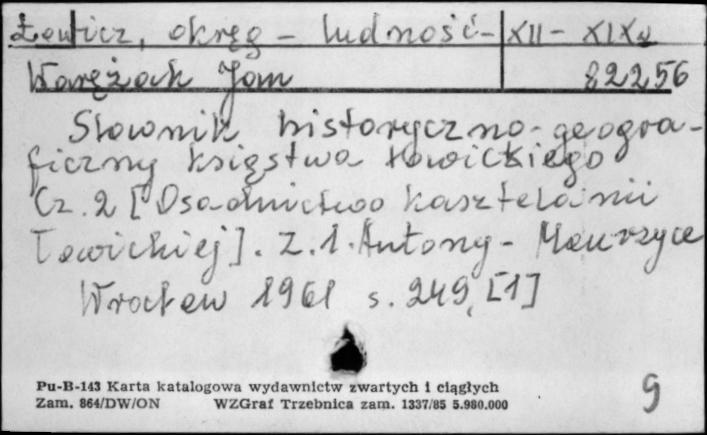 Łowicz, okręg - ludność - XII - XIXw
Warężak Jan 82256
Słownik historyczno-geogra-
ficzny księstwa łowickiego
Cz. 2 [Osadnictwo kasztelanii
łowickiej]. Z. 1. Antony - Maurzyce
Wrocław 1961 s. 249, [1]
Pu-B-143 Karta katalogowa wydawnictw zwartych i ciągłych
Zam. 864/DW/ON WZGraf Trzebnica zam. 1337/85 5.980.000
9